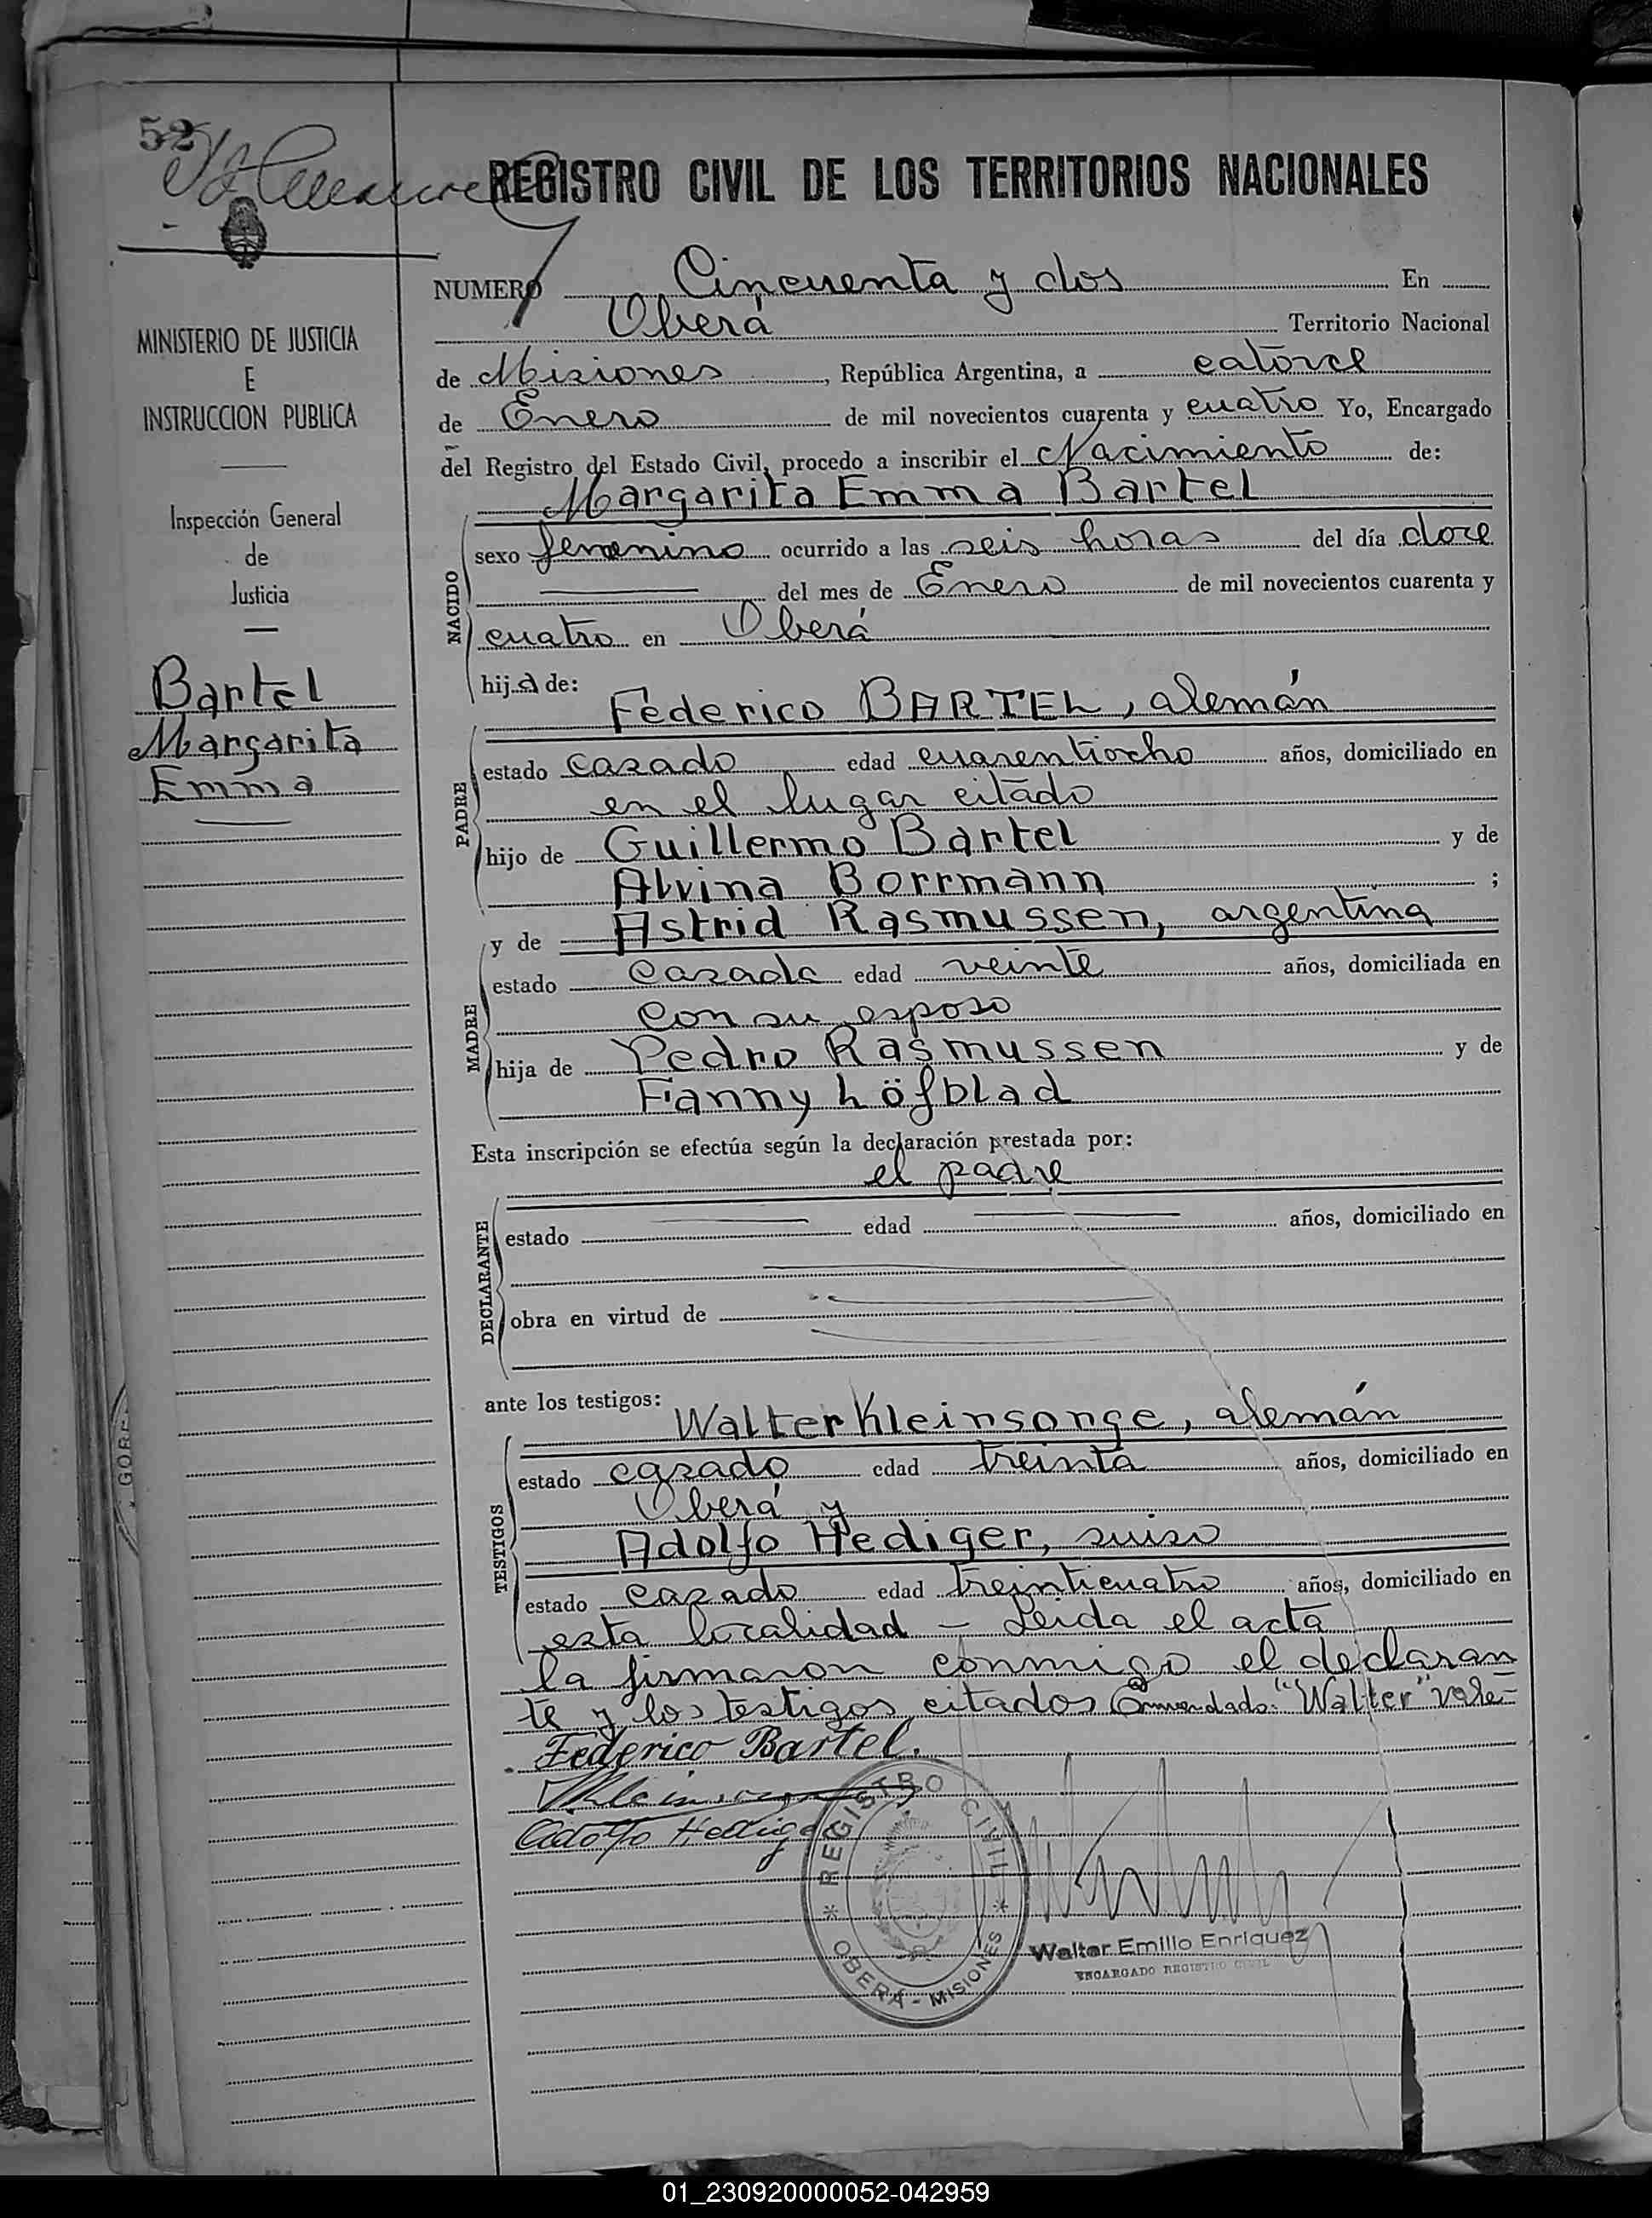 52
REGISTRO CIVIL DE LOS TERRITORIOS NACIONALES
MINISTERIO DE JUSTICIA
E
INSTRUCCION PUBLICA
Inspección General
de
Justicia
Bartel
Margarita
Emma
NUMERO Cincuenta y dos En
Oberá Territorio Nacional
de Misiones, República Argentina, a catorce
de Enero de mil novecientos cuarenta y cuatro Yo, Encargado
del Registro del Estado Civil, procedo a inscribir el Nacimiento de:
Margarita Emma Bartel
NACIDO
sexo femenino ocurrido a las seis horas del día doce
del mes de Enero de mil novecientos cuarenta y
cuatro en Oberá
hija de:
Federico BARTEL, alemán
PADRE
estado casado edad cuarentiocho años, domiciliado en
en el lugar citado
hijo de Guillermo Bartel y de
Alvina Borrmann ;
y de Astrid Rasmussen, argentina
MADRE
estado casada edad veinte años, domiciliada en
con su esposo
hija de Pedro Rasmussen y de
Fanny Löfblad
Esta inscripción se efectúa según la declaración prestada por:
el padre
DECLARANTE
estado edad años, domiciliado en
obra en virtud de
ante los testigos:
Walter Kleinsonge, alemán
TESTIGOS
estado casado edad treinta años, domiciliado en
Oberá y
Adolfo Hediger, suiso
estado casado edad treinticuatro años, domiciliado en
esta localidad – Leida el acta
la firmaron conmigo el declaran
te y los testigos citados Enmendado: "Walter" vale=
Federico Bartel.
Adolfo Hediger
REGISTRO CIVIL
* OBERÁ - MISIONES *
Walter Emilio Enriquez
ENCARGADO REGISTRO CIVIL
GOBE
01_230920000052-042959